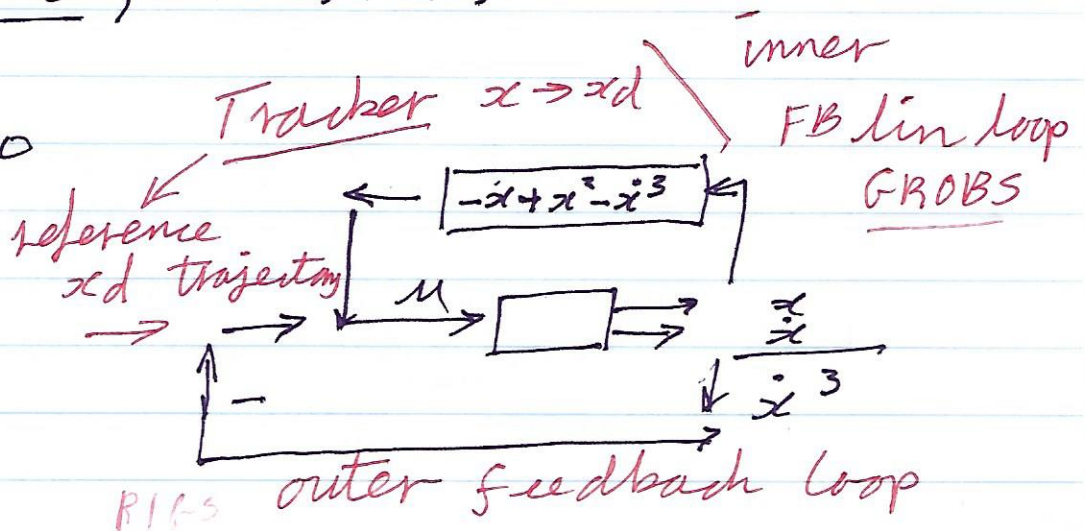 inner
Tracker x → xd
FB lin loop
GROBS
-ẋ + x² - ẋ³
reference
xd trajectory
u
x
ẋ
ẋ³
-
outer feedback loop